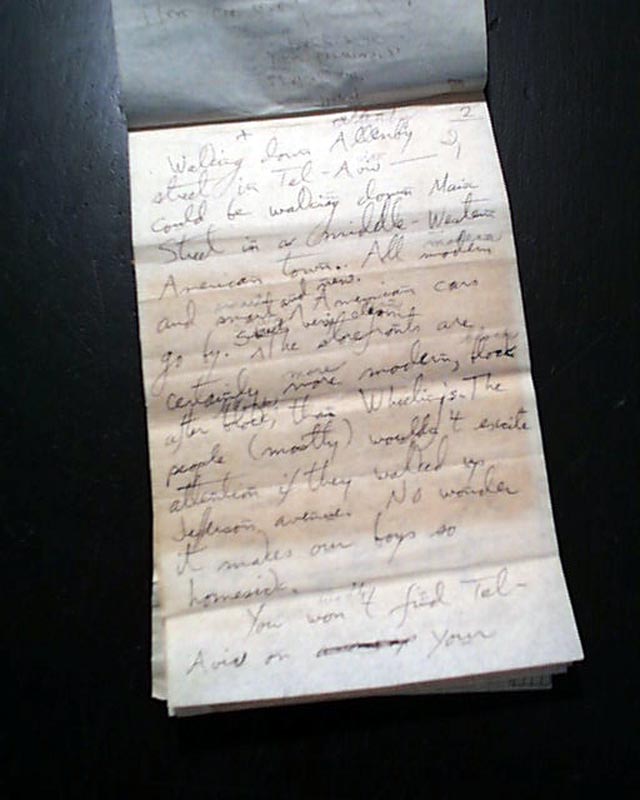 How are
2
Walking down Allenby
street in Tel-Aviv —
could be walking down Main
Street in a middle-Western
American town. All modern
and smart and new. American cars
go by. Streets very clean. The storefronts are
certainly more modern, block
after block, than Wheeling's. The
people (mostly) wouldn't excite
attention if they walked up
Jefferson avenue. No wonder
it makes our boys so
homesick.
You won't find Tel-
Aviv on your